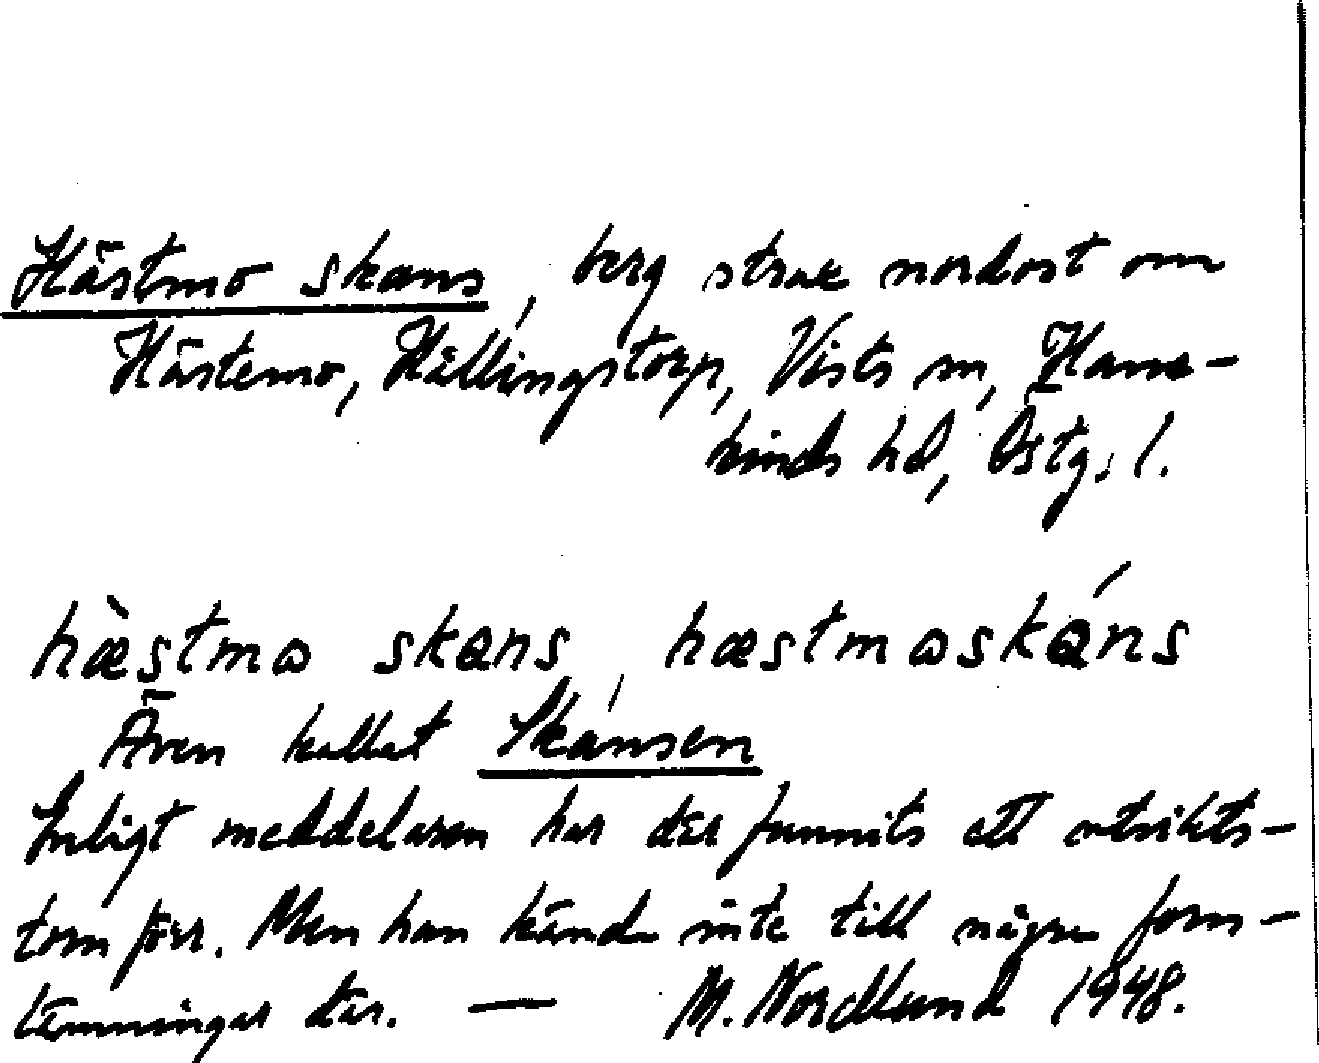 Hästmo skans, berg strax nordost om
Hästemo, Hällingstorp, Vists sn, Hane-
kinds hd, Östg. l.
hæ̀stmɷ skans, hæstmɷskáns
Även kallat Skansen
Enligt meddelaren har där funnits ett utsikts-
torn förr. Men han kände inte till några forn-
lämningar där. — M. Nordlund 1948.